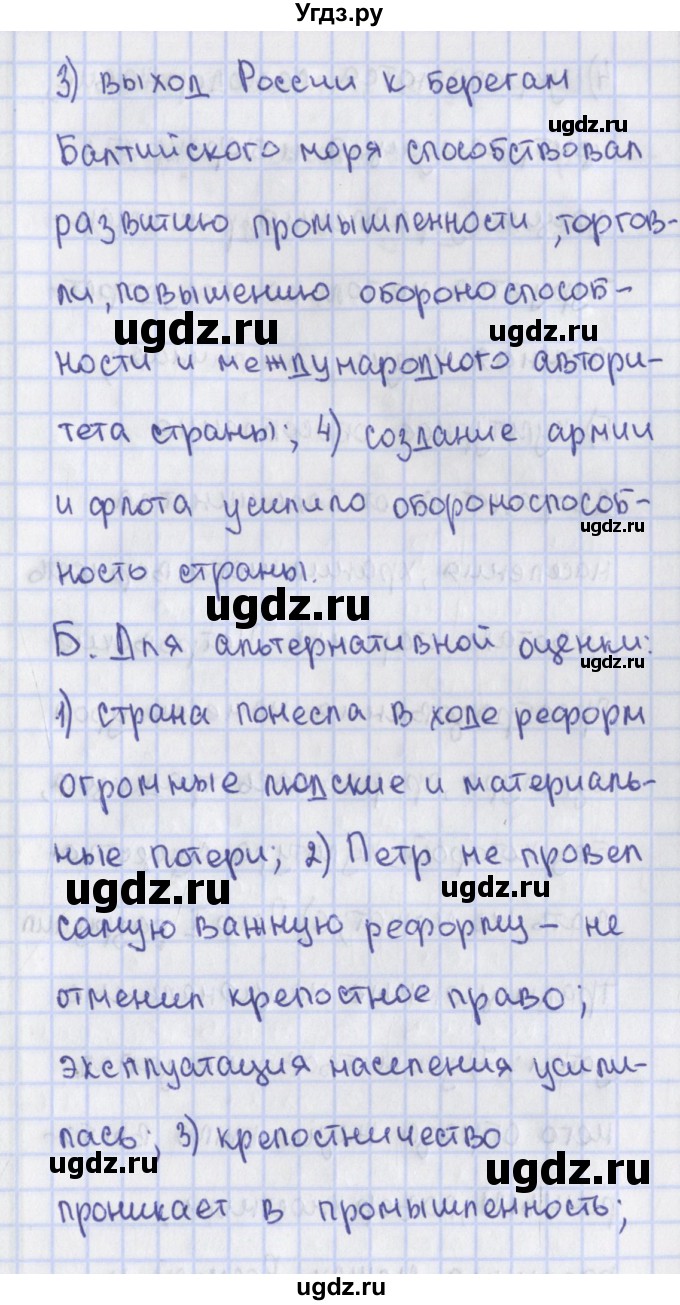 Угдз.ру
3) выход России к берегам
ugdz.ru
Балтийского моря способствовал
ugdz.ru
развитию промышленности, торгов-
ли, повышению обороноспособ-
ugdz.ru
ugdz.ru
ности и международного автори-
тета страны; 4) создание армии
и флота усилило обороноспособ-
ugdz.ru
ность страны.
ugdz.ru
Б. Для альтернативной оценки:
ugdz.ru
1) страна понесла в ходе реформ
огромные людские и материаль-
ные потери; 2) Петр не провел
ugdz.ru
ugdz.ru
самую важную реформу – не
отменил крепостное право;
эксплуатация населения усили-
лась; 3) крепостничество
ugdz.ru
ugdz.ru
проникает в промышленность;
ugdz.ru